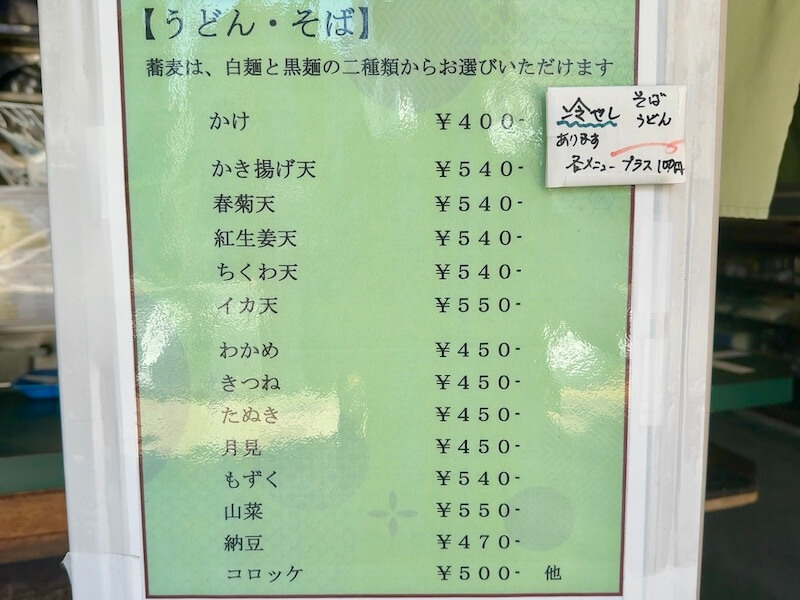 【うどん・そば】
蕎麦は、白麺と黒麺の二種類からお選びいただけます
かけ ￥400-
かき揚げ天 ￥540-
春菊天 ￥540-
紅生姜天 ￥540-
ちくわ天 ￥540-
イカ天 ￥550-
わかめ ￥450-
きつね ￥450-
たぬき ￥450-
月見 ￥450-
もずく ￥540-
山菜 ￥550-
納豆 ￥470-
コロッケ ￥500- 他
冷やし そば
うどん
あります
各メニュー プラス100円